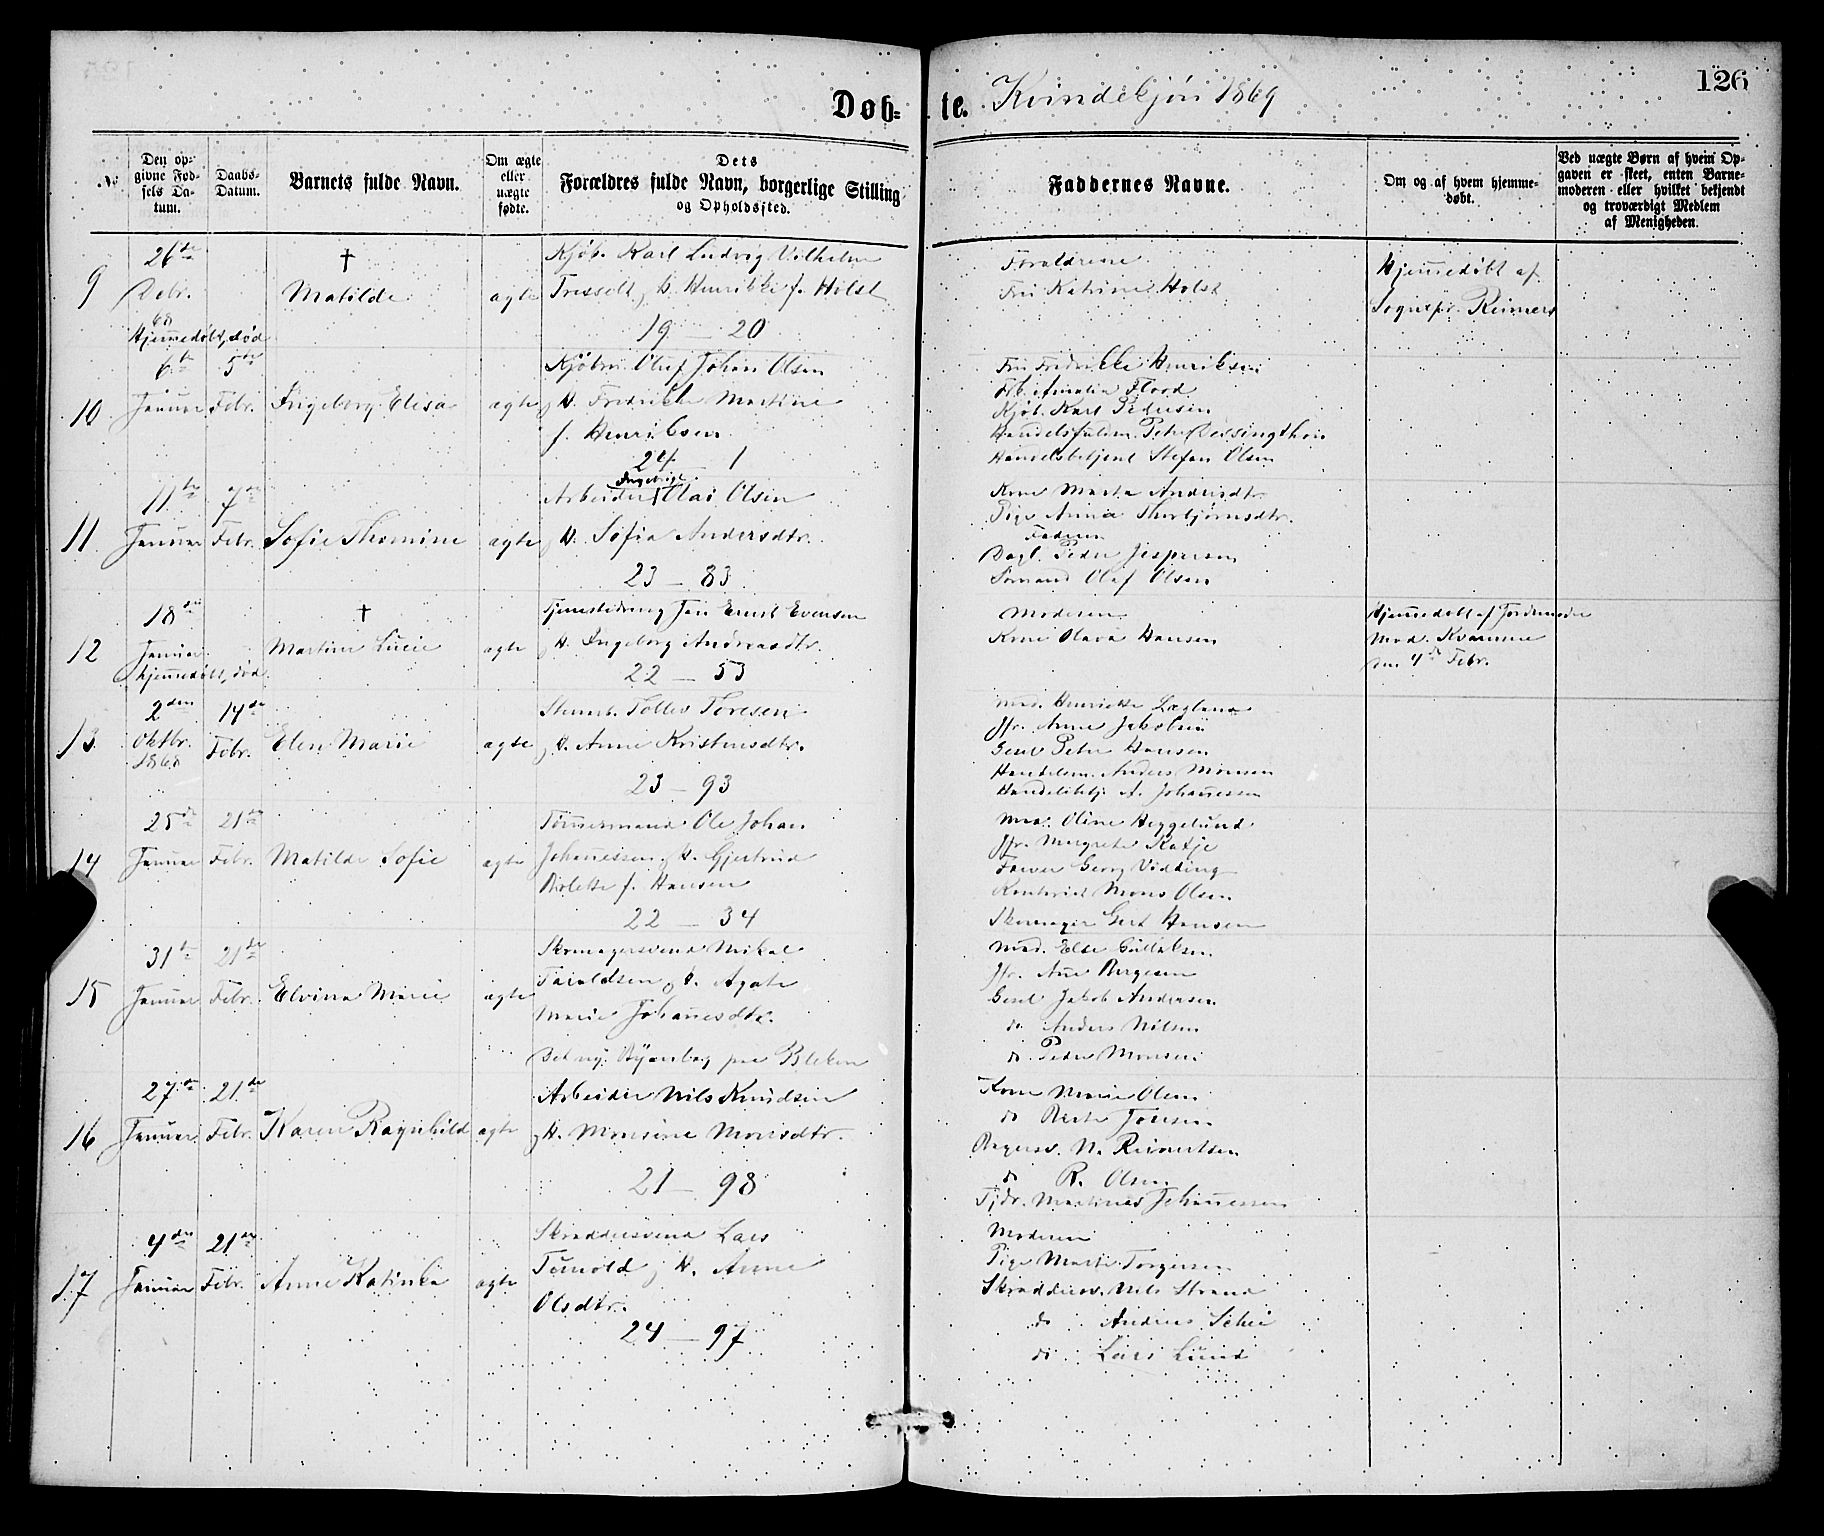 126
Døb= te. Kvindekjøn 1869
No
Den op-
givne Fød-
sels Da-
tum.
Daabs-
Datum.
Barnets fulde Navn.
Om ægte
eller
uægte
fødte.
Dets
Forældres fulde Navn, borgerlige Stilling
og Opholdssted.
Faddernes Navne.
Om og af hvem hjemme-
døbt.
Ved uægte Børn af hvem Op-
gaven er skeet, enten Barne-
moderen eller hvilket bekjendt
og troværdigt Medlem
af Menigheden.
9
26de
Debr.
68
Hjemmedøbt, død
†
Matilde
ægte
Kjøb. Karl Ludvig Vilhelm
Tresselt og H. Henrikke f. Holst
19 — 20
Forældrene
Fru Katrine Holst
Hjemmedøbt af
Sognepr. Reimers
10
6te
Januar
5te
Febr.
Ingeborg Elisa
ægte
Kjøbm. Oluf Johan Olsen
og H. Fredrikke Martine
f. Henriksen
24 1
Fru Fredrikke Henriksen
Frk. Amalia Flood
Kjøb. Karl Pedersen
Handelsfuldm. Peter
Handelsbetjent Stefan Olsen
11
11te
Januar
7de
Febr.
Sofie Thomine
ægte
Ingebrigt
Arbeider Olai Olsen
og H. Sofia Andersdtr.
23 — 83
Kone Marta Andersdtr.
Pige Anna Thorbjørnsdtr.
Faderen
Dagl. Peder Jespersen
Sømand Olaf Olsen
12
18de
Januar
hjemmedøbt, død.
†
Martine Lucie
ægte
Tjenestedreng Jan Ernst Evensen
og H. Ingeborg Andreasdtr.
22 — 53
Moderen
Kone Olava Hansen
Hjemmedøbt af Jordemoder
Mad. Kvamme
den 4de Febr.
13
2den
Oktbr.
1868
14de
Febr.
Elen Marie
ægte
Stenarb. Tollev Toresen
og H. Anne Kristensdtr.
23 — 93
Mad. Henriette
Jfr. Anne Jakobsen
Gesel Peter Hansen
Handelsm. Anders Monsen
Handelsbetj. A. Johannessen
14
25de
Januar
21de
Febr.
Matilde Sofie
ægte
Tømmermand Ole Johan
Johannessen og H. Gjertrud
Nolette f. Hansen
22 — 34
Mad. Oline Heggelund
Jfr. Margrete Katje
Farver Georg Vidding
Kontorist Mons Olsen
Skomager Gert Hansen
15
31te
Januar
21de
Febr.
Elvina Marie
ægte
Skomagersvend Mikal
Taraldsen og H. Agate
Marie Johannesdtr.
Det ny Byanlæg paa Bleken
Mad. Else Gullaksen
Jfr. Ane Børgesen
Gesel Jakob Andersen
do Anders Nilsen
do Peder Monsen
16
27de
Januar
21de
Febr.
Karen Ragnhild
ægte
Arbeider Nils Knudsen
og H. Monsine Monsdtr.
21 — 98
Kone Marie Olsen
do Berte Jonsen
Bagersv. N. Reinertsen
do R. Olsen
Tjdr. Martines Johannessen
17
4de
Januar
21de
Febr.
Anne Katinka
ægte
Skræddersvend Lars
Tunold og H. Anne
Olsdtr.
24 — 97
Moderen
Pige Marte Torgersen
Skræddersv. Nils Strand
do Anders Schei
do Lars Lund